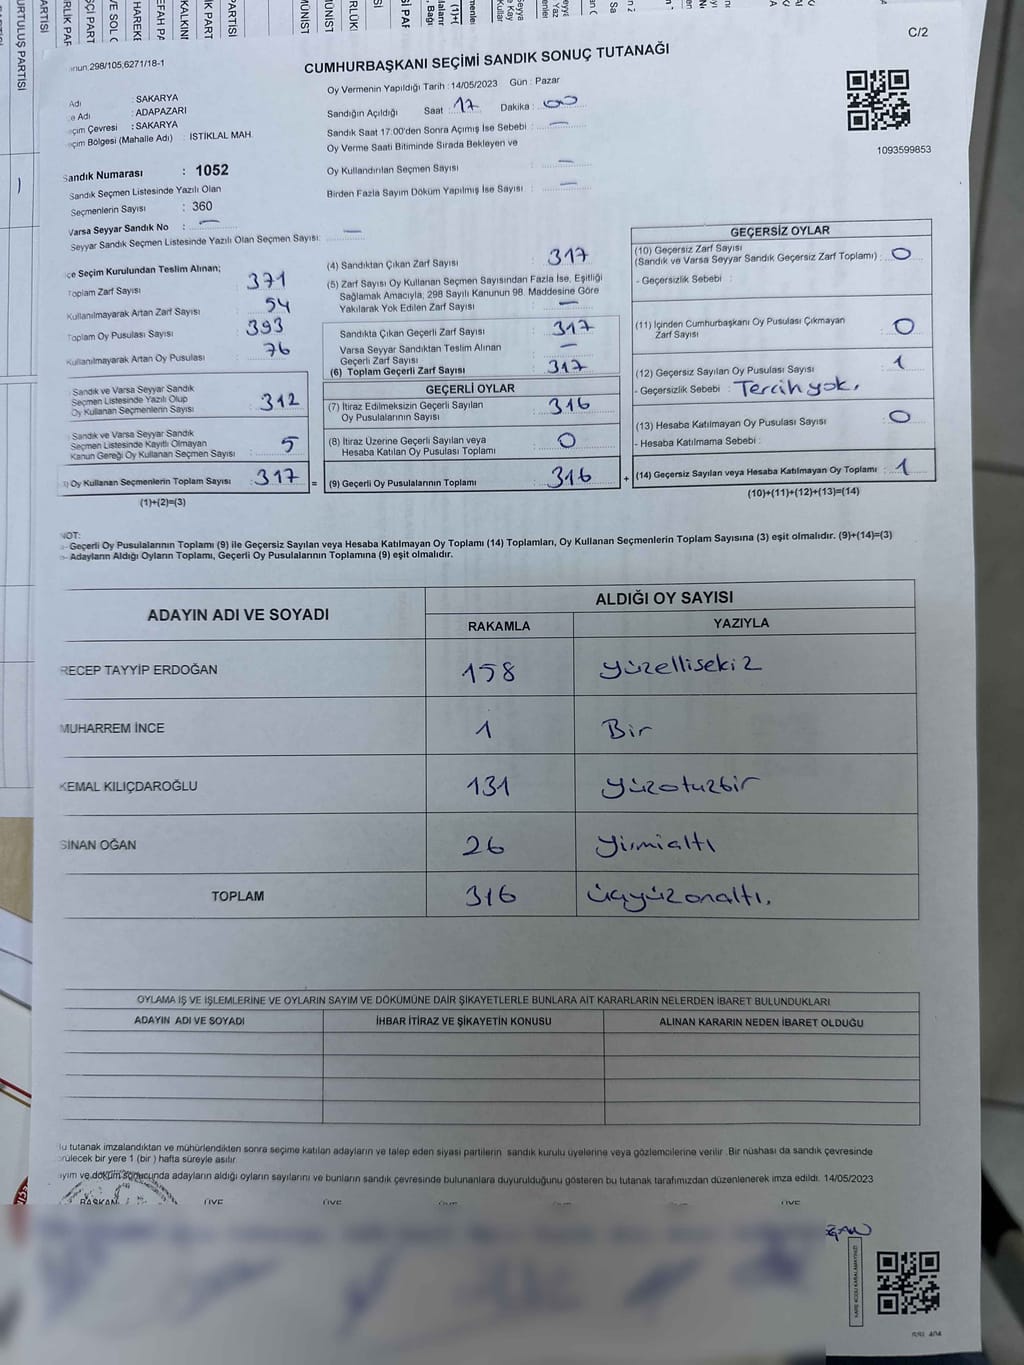 C/2
CUMHURBAŞKANI SEÇİMİ SANDIK SONUÇ TUTANAĞI
298/105,6271/18-1
Adı : SAKARYA
e Adı : ADAPAZARI
çim Çevresi : SAKARYA
çim Bölgesi (Mahalle Adı) : İSTİKLAL MAH.
Sandık Numarası : 1052
Sandık Seçmen Listesinde Yazılı Olan
Seçmenlerin Sayısı : 360
Varsa Seyyar Sandık No : —
Seyyar Sandık Seçmen Listesinde Yazılı Olan Seçmen Sayısı: —
Oy Vermenin Yapıldığı Tarih : 14/05/2023 Gün : Pazar
Sandığın Açıldığı Saat : 17 Dakika : 00
Sandık Saat 17:00'den Sonra Açımış İse Sebebi : —
Oy Verme Saati Bitiminde Sırada Bekleyen ve
Oy Kullandırılan Seçmen Sayısı : —
Birden Fazla Sayım Döküm Yapılmış İse Sayısı : —
1093599853
çe Seçim Kurulundan Teslim Alınan;
Toplam Zarf Sayısı : 371
Kullanılmayarak Artan Zarf Sayısı : 54
Toplam Oy Pusulası Sayısı : 393
Kullanılmayarak Artan Oy Pusulası : 76
Sandık ve Varsa Seyyar Sandık
Seçmen Listesinde Yazılı Olup
Oy Kullanan Seçmenlerin Sayısı : 312
Sandık ve Varsa Seyyar Sandık
Seçmen Listesinde Kayıtlı Olmayan
Kanun Gereği Oy Kullanan Seçmen Sayısı : 5
) Oy Kullanan Seçmenlerin Toplam Sayısı : 317
(1)+(2)=(3)
(4) Sandıktan Çıkan Zarf Sayısı : 317
(5) Zarf Sayısı Oy Kullanan Seçmen Sayısından Fazla İse, Eşitliği
Sağlamak Amacıyla, 298 Sayılı Kanunun 98. Maddesine Göre
Yakılarak Yok Edilen Zarf Sayısı : —
Sandıkta Çıkan Geçerli Zarf Sayısı : 317
Varsa Seyyar Sandıktan Teslim Alınan
Geçerli Zarf Sayısı : —
(6) Toplam Geçerli Zarf Sayısı : 317
GEÇERLİ OYLAR
(7) İtiraz Edilmeksizin Geçerli Sayılan
Oy Pusulalarının Sayısı : 316
(8) İtiraz Üzerine Geçerli Sayılan veya
Hesaba Katılan Oy Pusulası Toplamı : 0
= (9) Geçerli Oy Pusulalarının Toplamı : 316 +
GEÇERSİZ OYLAR
(10) Geçersiz Zarf Sayısı
(Sandık ve Varsa Seyyar Sandık Geçersiz Zarf Toplamı) : 0
- Geçersizlik Sebebi :
(11) İçinden Cumhurbaşkanı Oy Pusulası Çıkmayan
Zarf Sayısı : 0
(12) Geçersiz Sayılan Oy Pusulası Sayısı : 1
- Geçersizlik Sebebi : Tercih yok.
(13) Hesaba Katılmayan Oy Pusulası Sayısı : 0
- Hesaba Katılmama Sebebi :
(14) Geçersiz Sayılan veya Hesaba Katılmayan Oy Toplamı : 1
(10)+(11)+(12)+(13)=(14)
NOT:
- Geçerli Oy Pusulalarının Toplamı (9) ile Geçersiz Sayılan veya Hesaba Katılmayan Oy Toplamı (14) Toplamları, Oy Kullanan Seçmenlerin Toplam Sayısına (3) eşit olmalıdır. (9)+(14)=(3)
- Adayların Aldığı Oyların Toplamı, Geçerli Oy Pusulalarının Toplamına (9) eşit olmalıdır.
ADAYIN ADI VE SOYADI ALDIĞI OY SAYISI
RAKAMLA YAZIYLA
RECEP TAYYİP ERDOĞAN 158 yüzellisekiz
MUHARREM İNCE 1 Bir
KEMAL KILIÇDAROĞLU 131 yüzotuzbir
SİNAN OĞAN 26 yirmialtı
TOPLAM 316 üçyüzonaltı.
OYLAMA İŞ VE İŞLEMLERİNE VE OYLARIN SAYIM VE DÖKÜMÜNE DAİR ŞİKAYETLERLE BUNLARA AİT KARARLARIN NELERDEN İBARET BULUNDUKLARI
ADAYIN ADI VE SOYADI İHBAR İTİRAZ VE ŞİKAYETİN KONUSU ALINAN KARARIN NEDEN İBARET OLDUĞU
u tutanak imzalandıktan ve mühürlendikten sonra seçime katılan adayların ve talep eden siyasi partilerin sandık kurulu üyelerine veya gözlemcilerine verilir. Bir nüshası da sandık çevresinde
rülecek bir yere 1 (bir) hafta süreyle asılır.
ayım ve döküm sonucunda adayların aldığı oyların sayılarını ve bunların sandık çevresinde bulunanlara duyurulduğunu gösteren bu tutanak tarafımızdan düzenlenerek imza edildi. 14/05/2023
BAŞKAN ÜYE ÜYE ÜYE ÜYE ÜYE ÜYE